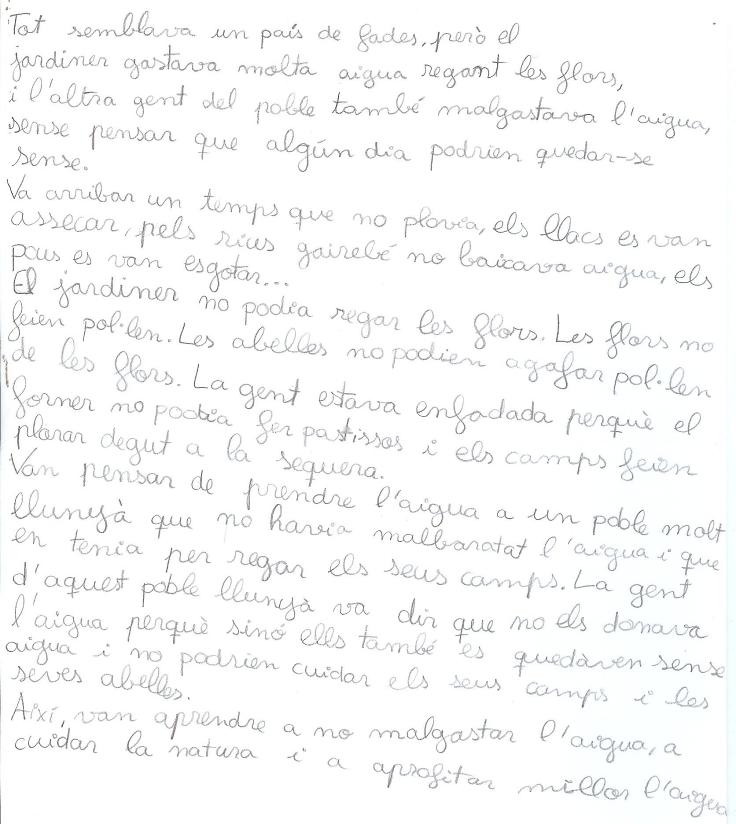 Tot semblava un país de fades, però el
jardiner gastava molta aigua regant les flors,
i l'altra gent del poble també malgastava l'aigua,
sense pensar que algún dia podrien quedar-se
sense.
Va arribar un temps que no plovia, els llacs es van
assecar, pels rius gairebé no baixava aigua, els
pous es van esgotar...
El jardiner no podia regar les flors. Les flors no
feien pol·len. Les abelles no podien agafar pol·len
de les flors. La gent estava enfadada perquè el
forner no podia fer pastissos i els camps feien
plorar degut a la sequera.
Van pensar de prendre l'aigua a un poble molt
llunyà que no havia malbaratat l'aigua i que
en tenia per regar els seus camps. La gent
d'aquest poble llunyà va dir que no els donava
l'aigua perquè sinó ells també es quedaven sense
aigua i no podrien cuidar els seus camps i les
seves abelles.
Així, van aprendre a no malgastar l'aigua, a
cuidar la natura i a aprofitar millor l'aigua